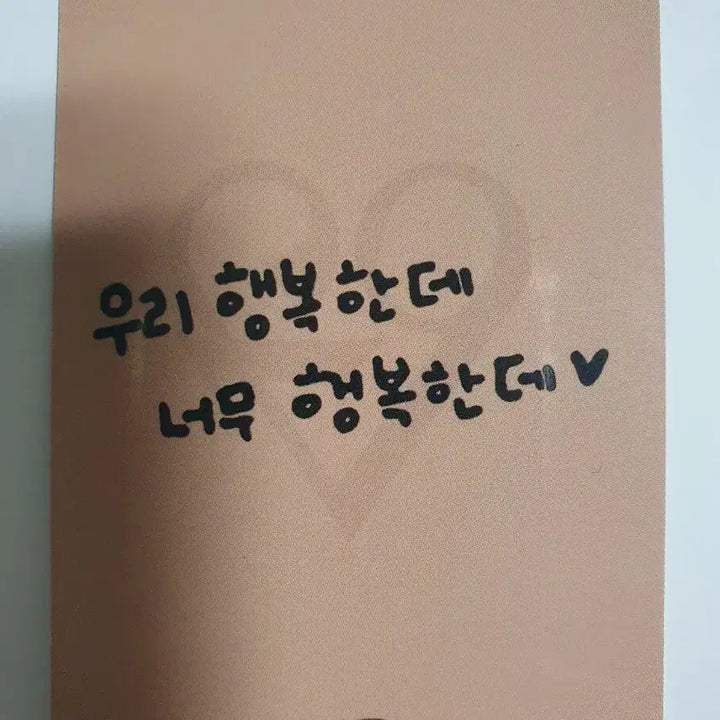 우리 행복한데
너무 행복한데♥